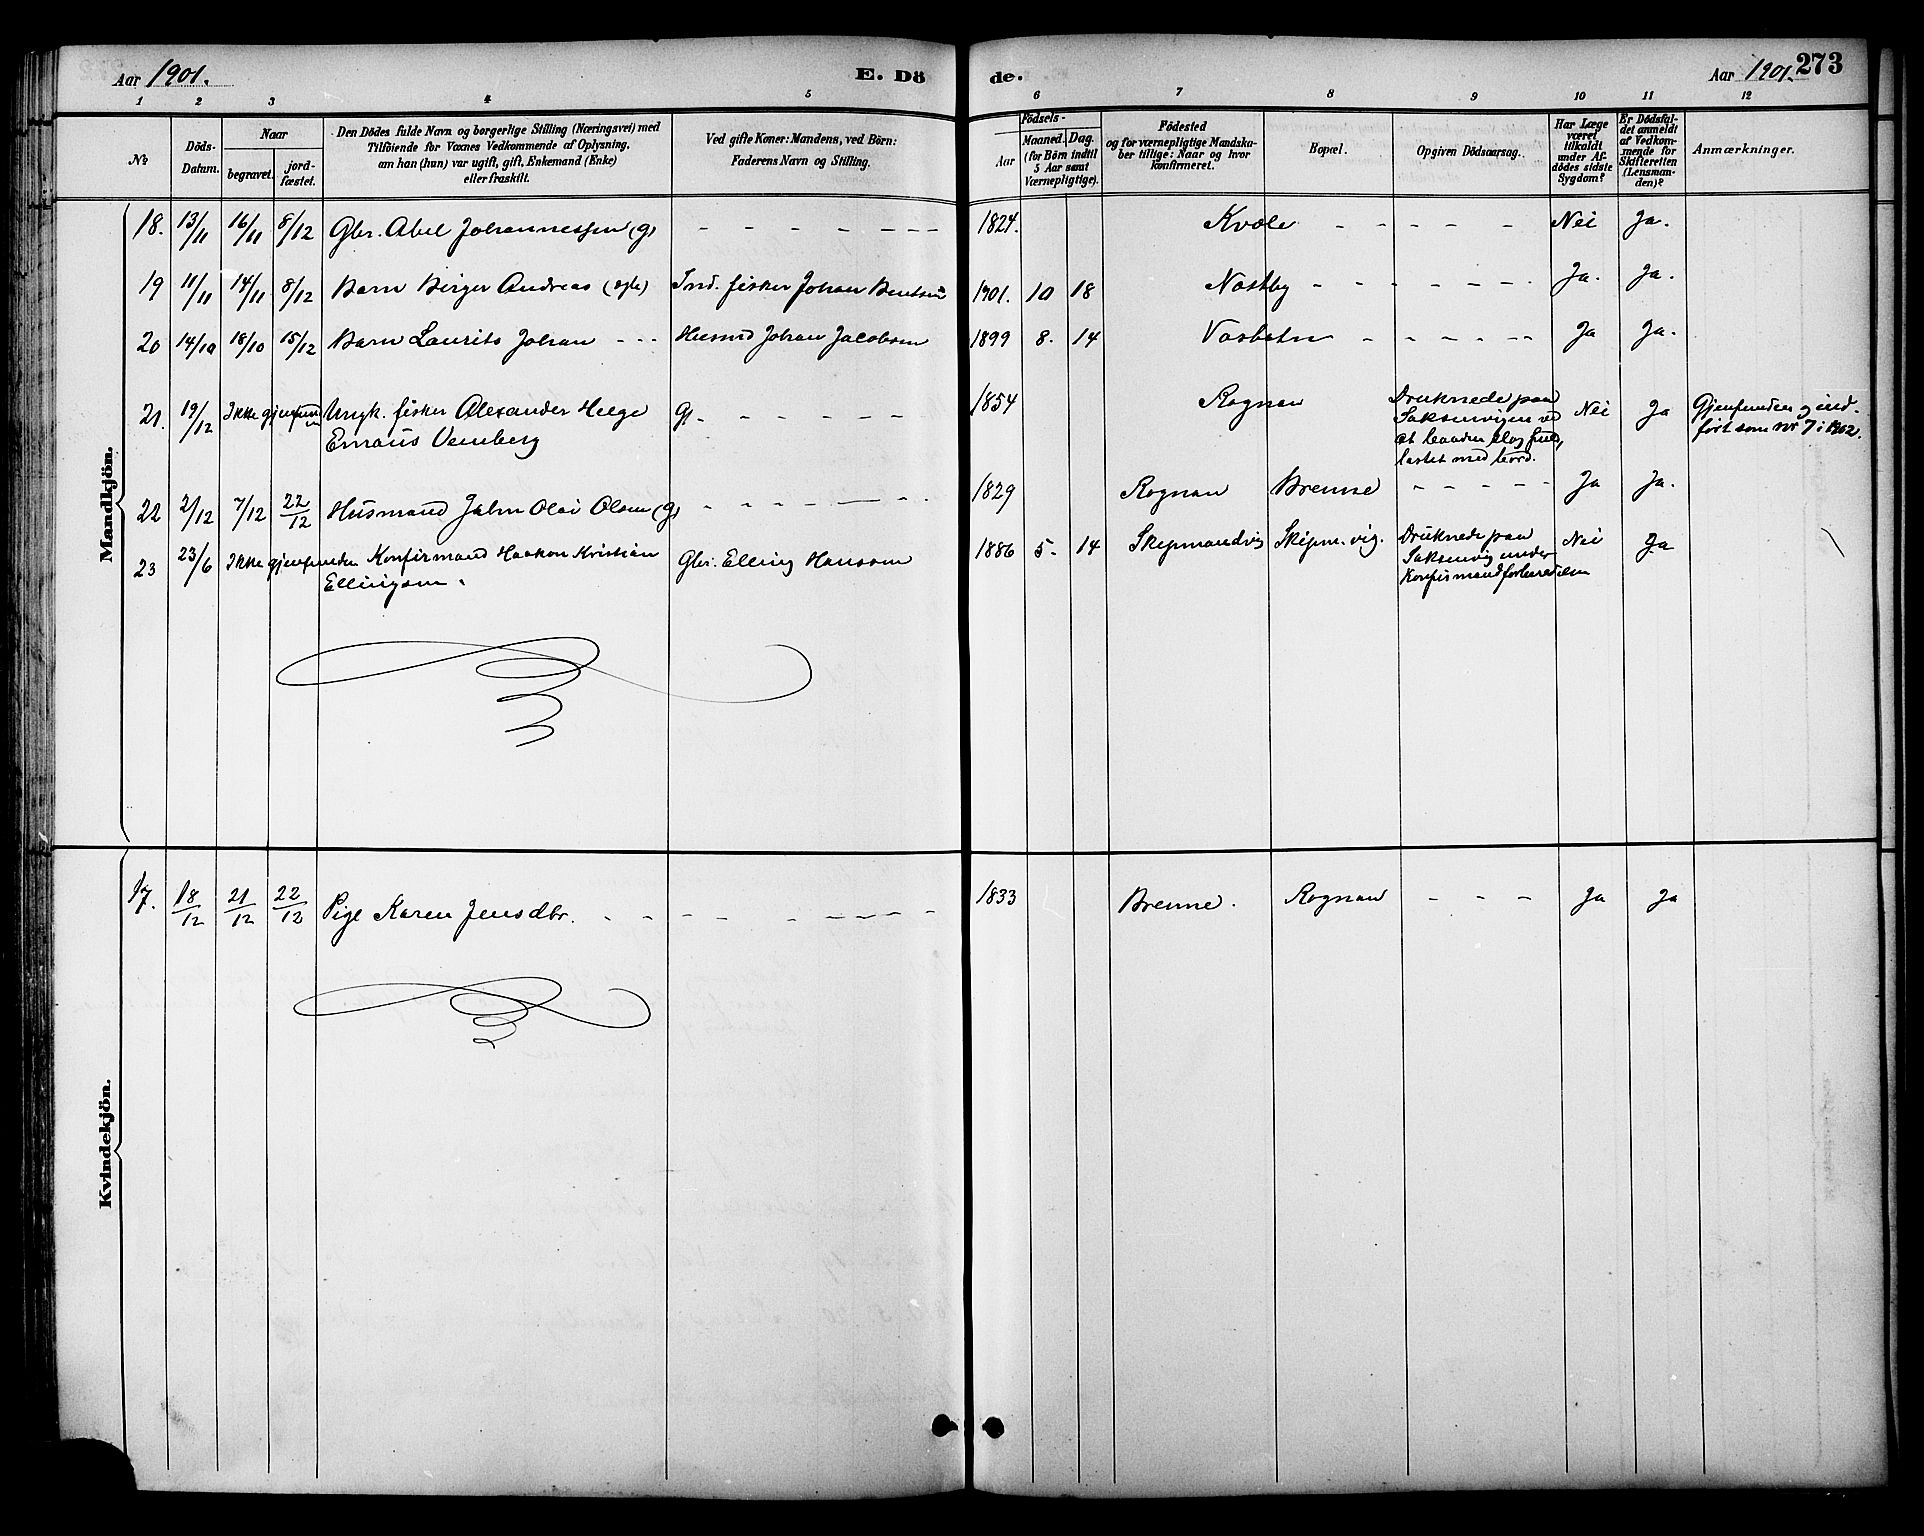 Aar 1901.
E. Dö
de.
Aar 1901.
273
1 2 3 4 5 6 7 8 9 10 11 12
No
Döds-
Datum.
Naar
begravet.
jord-
fæstet.
Den Dödes fulde Navn og borgerlige Stilling (Næringsvei) med
Tilföiende for Voxnes Vedkommende af Oplysning,
om han (hun) var ugift, gift, Enkemand (Enke)
eller fraskilt.
Ved gifte Koner: Mandens, ved Börn:
Faderens Navn og Stilling.
Födsels-
Aar
Maaned. Dag.
(for Börn indtil
5 Aar samt
Værnepligtige).
Födested
og for værnepligtige Mandska-
ber tillige: Naar og hvor
konfirmeret.
Bopæl.
Opgiven Dödsaarsag.
Har Læge
været
tilkaldt
under Af-
dödes sidste
Sygdom?
Er Dödsfal-
det anmeldt
af Vedkom-
mende for
Skifteretten
(Lensman-
den)?
Anmærkninger.
Mandkjön.
18. 13/11 16/11 8/12 Gbr. Abel Johannessen (g) - - - - - - - 1824. Kvæle - - - - - Nei Ja.
19 11/11 14/11 8/12 Barn Birger Andreas (egte) Ind. fisker Johan Bentsen 1901. 10 18 Nestby - - - - - - Ja. Ja.
20 14/10 18/10 15/12 Barn Laurits Johan - - - Husmd Johan Jacobsen 1899 8. 14 Vasbotn - - - - - Ja Ja.
21. 19/12 Ikke gjenfunden Ungk. fisker Alexander Helge G. - - - - - - 1854 Rognan Druknede paa Nei Ja Gjenfunden g ind-
Emaus Vemberg Saksenvigen ved ført som nr 7 i 1902.
at baaden slog fuld,
lastet med bord.
22 2/12 7/12 22/12 Husmand John Olai Olsen (g) - - - - - - - 1829 Rognan Brenne - - - - - Ja Ja.
23 23/6 Ikke gjenfunden Konfirmand Haakon Kristian Gbr. Elling Hansen 1886 5. 14 Skipmandvig Skipm. vig. Druknede paa Nei Ja
Ellingsen. Saksenvig under
Konfirmandforberedelsen
Kvindekjön.
17. 18/12 21/12 22/12 Pige Karen Jensdbr. - - - - - - - - - 1833 Brenne. Rognan - - - - Ja Ja